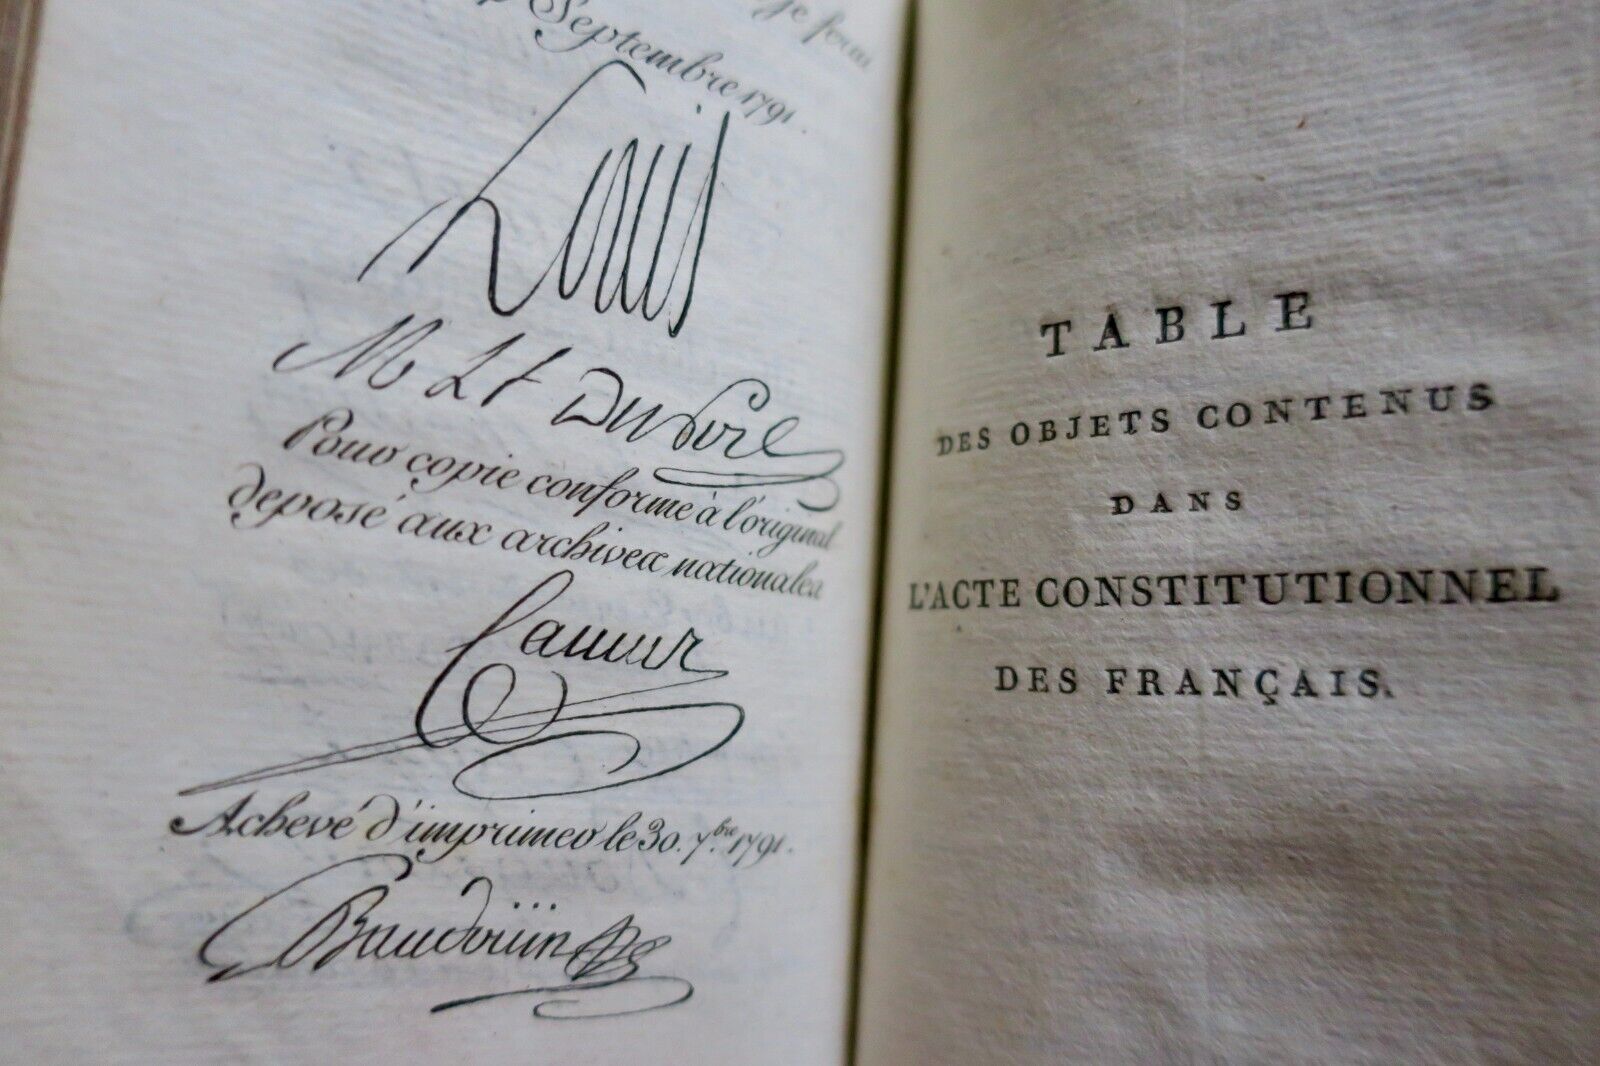 je ferai
Septembre 1791.
Louis
M L F DuPort
Pour copie conforme à l'original
deposé aux archives nationales
Camus
Achevé d'imprimer le 30. 7.bre 1791.
Baudouin
TABLE
DES OBJETS CONTENUS
DANS
L'ACTE CONSTITUTIONNEL
DES FRANÇAIS.